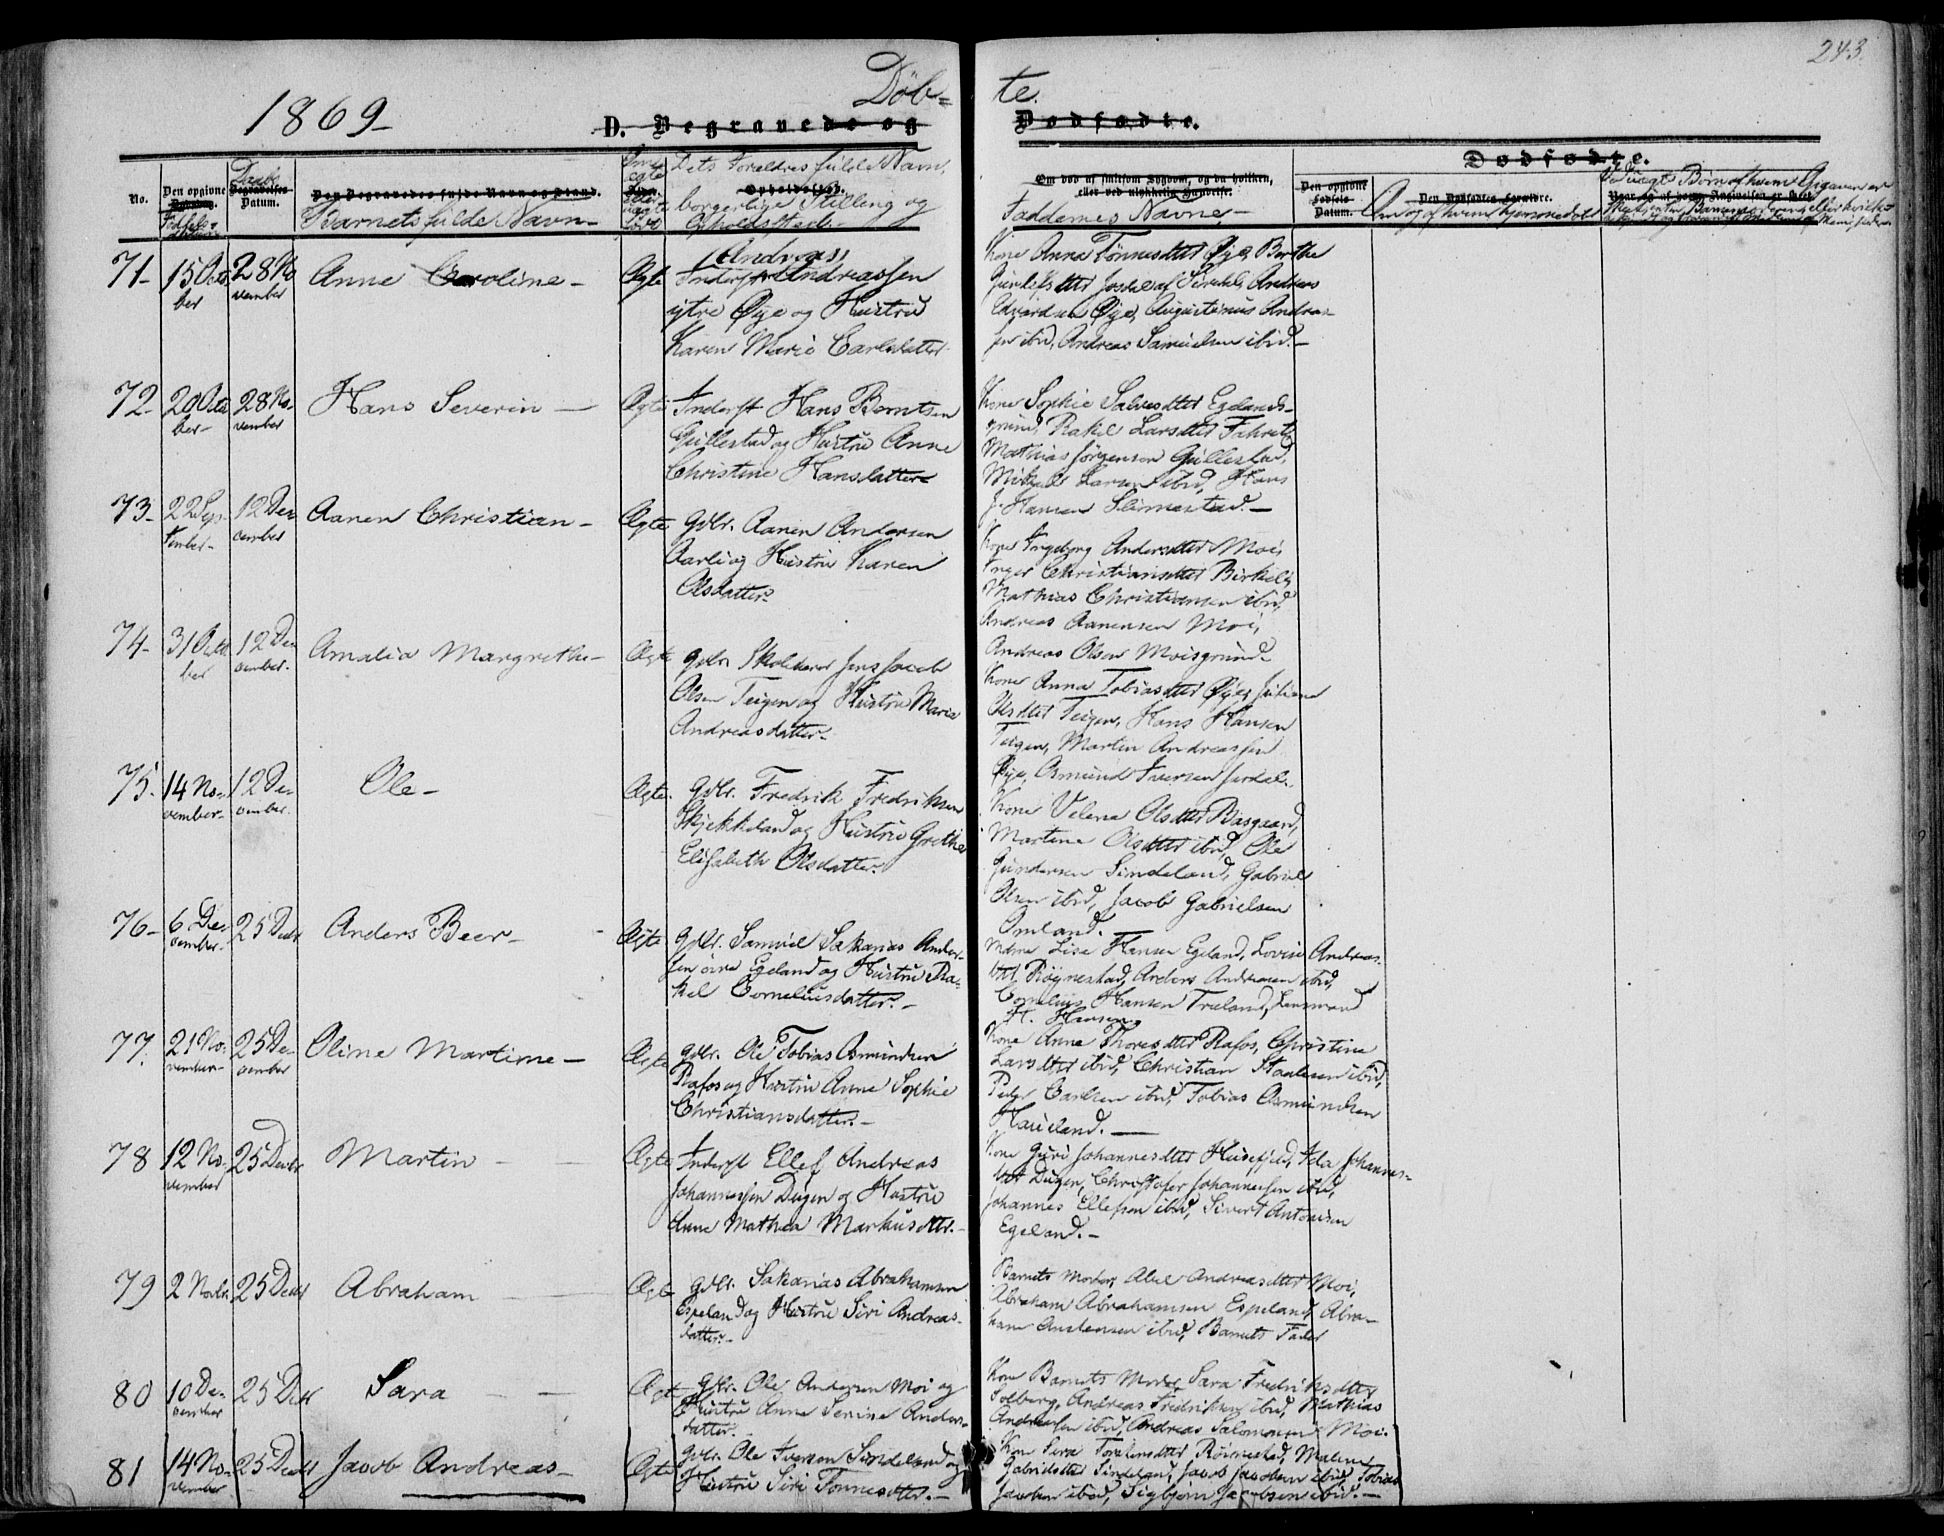 243.
1869
Døb-
te.
D. Begravede og
Dødfødte.
Dødfødte.
No.
Den opgivne
Fødsels-
Daabs
Begravelses-
Datum.
Den Begravedes fulde Navn og Stand.
Barnets fulde Navn
Dets Forældres fulde Navn,
Opholdssted.
borgerlige Stilling og
Opholdssted.
Om død af smitsom Sygdom, og da hvilken,
eller ved ulykkelig Hændelse.
Faddernes Navne
Den opgivne
Fødsels-
Datum.
Den Dødfødtes Forældre.
71-
15 Octo
ber
28 No
vember
Anne Caroline-
Ægte
(Andreas)
Inderst Andreassen
ytre Øye og Hustru
Karen Marie Carlsdatter
Kone Anna Tønnesdtter Øye, Berthe
Andreas
Øye, Augustinus Andrea-
sen ibid, Andreas Samuelsen ibid.-
72-
20 Octo
ber-
28 No-
vember
Hans Severin-
Ægte
Inderst Hans Berntsen
Gullestad og Hustru Anne
Christine Hansdatter
Kone Sophie Salvesdtter Egelands-
grund, Rakel Larsdtter
Mathias Jørgensen Gullestad,
Larsen ibid, Hans
J. Hansen Slimestad.-
73-
22 Sep-
tember-
12 De
cember
Aanen Christian-
Ægte
Gdbr. Aanen Andersen
Aarli og Hustru Karen
Olsdatter-
Kone Ingeborg Andersdtter Moi,
Inger Christiansdtter Birkeli,
Mathias Christiansen ibid,
Andreas Aanensen Moi,
Andreas Olsen Moisgrund-
74-
31 Octo
ber
12 De
cember-
Amalia Margrethe-
Ægte
Gdbr. Skolelærer Jens Jacob
Olsen Teigen og Hustru Maria
Andreasdatter-
Kone Anna Tobiasdtter Øye, Juliane
Olsdtter Teigen, Hans Hansen
Teigen, Martin Andreassen
Øye, Asmund Iversen
75-
14 No-
vember-
12 De-
cember.
Ole-
Ægte.
Gdbr. Fredrik Fredriksen
Skjekkeland og Hustru Grethe
Elisabeth Olsdatter.
Kone Velena Olsdtter Risgaard,
Martine Olsdtter ibid, Ole
Gundersen Sindeland, Gabriel
Olsen ibid, Jacob Gabrielsen
Omland.
76-
6 De-
cember-
25 Decbr
Anders Beer-
Ægte
Gdbr. Samuel Sakarias Ander-
sen øvre Egeland og Hustru Ra-
kel Corneliusdatter.-
Lise Hansen Egeland, Lovise Andreas-
dtter Røynestad, Anders Andreasen ibid,
Cornelius Hansen Treland, Lensmand
H. Hansen
77.
21 No-
vember-
25 De-
cember
Oline Martine-
Ægte
Gdbr. Ole Tobias Asmundsen
Rafos og Hustru Anne Sophie
Christiansdatter.-
Kone Anne Thoresdtter Rafos, Christine
Larsdtter ibid, Christian Staalesen ibid,
Peder Carlsen ibid, Tobias Asmundsen
Haugland.-
78
12 No-
vember
25 Decbr
Martin-
Ægte
Inderst Ellef Andreas
Johannessen Dugen og Hustru
Anne Mathea Markusdttr.-
Kone Guri Johannesdtter Husefjeld, Ida Johannes-
dtter Dugen, Christofer Johannessen ibid,
Johannes Ellefsen ibid, Sivert Antonisen
Egeland.-
79
2 Novbr
25 Decbr
Abraham-
Ægte
Gdbr. Sakarias Abrahamsen
Espeland og Hustru Siri Andreas-
datter-
Barnets Moder, Abel Andreasdtter Moi,
Abraham Abrahamsen Espeland, Abra-
ham Austensen ibid, Barnets Fader
80
10 De-
cember
25 Decbr
Sara
Ægte
Gdbr. Ole Andersen Moi og
Hustru Anne Serine Anders-
datter.
Kone Barnets Moder, Sara Fredriksdtter
Solberg, Andreas Fredriksen ibid, Mathias
Andersen ibid, Andreas Salomonsen Moi.
81
14 No-
vember
25 Decbr
Jacob Andreas-
Ægte
Gdbr. Ole Iversen Sindeland og
Hustru Siri Tønnesdtter.-
Kone Sera Torkelsdtter Røinestad, Malene
Gabrielsdtter Sindeland, Jacob Jacobsen ibid, Tobias
Jacobsen ibid, Sigbjørn Jacobsen ibid.-